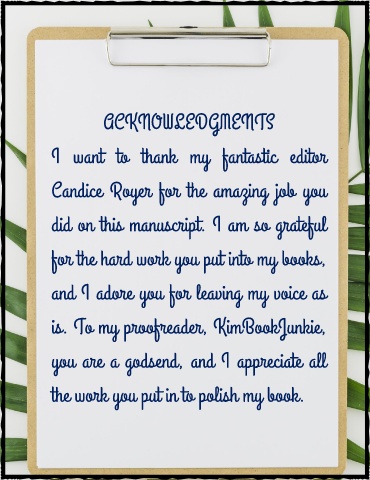 ACKNOWLEDGMENTS
I want to thank my fantastic editor
Candice Royer for the amazing job you
did on this manuscript. I am so grateful
for the hard work you put into my books,
and I adore you for leaving my voice as
is. To my proofreader, KimBookJunkie,
you are a godsend, and I appreciate all
the work you put in to polish my book.